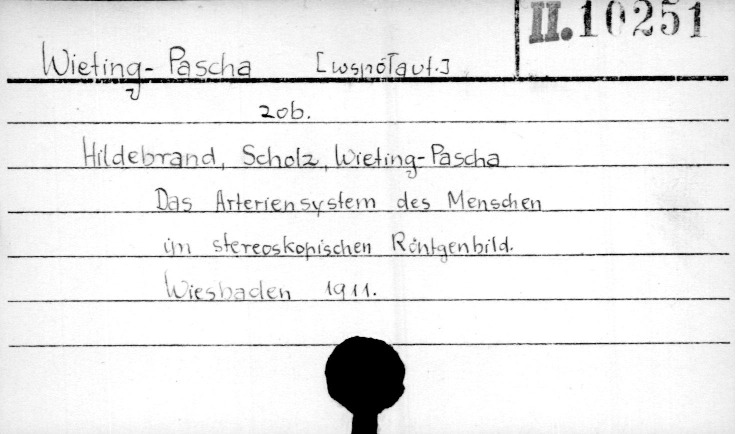 II.10251
Wieting-Pascha [współaut.]
zob.
Hildebrand, Scholz, Wieting-Pascha
Das Arteriensystem des Menschen
im stereoskopischen Röntgenbild.
Wiesbaden 1911.